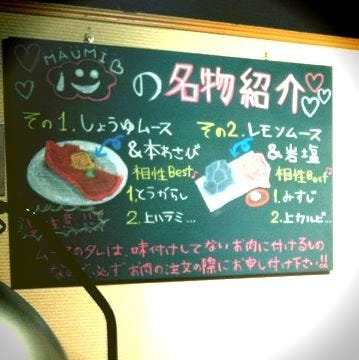 MAUMIB
の名物紹介
その1.しょうゆムース
&本わさび
相性Best♪
1.とうがらし
2.上ハラミ…
その2.レモンムース
&岩塩
相性Best♪
1.みすじ
2.上カルビ…
注意!!
ムースのタレは、味付けしてないお肉に付けるもの
必ずお肉の注文の際にお申し付け下さい!!